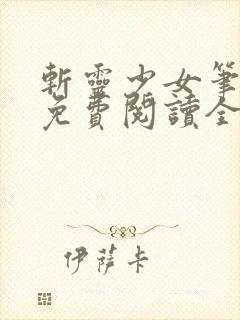 斬靈少女筆
免費閱讀全
伊薩卡